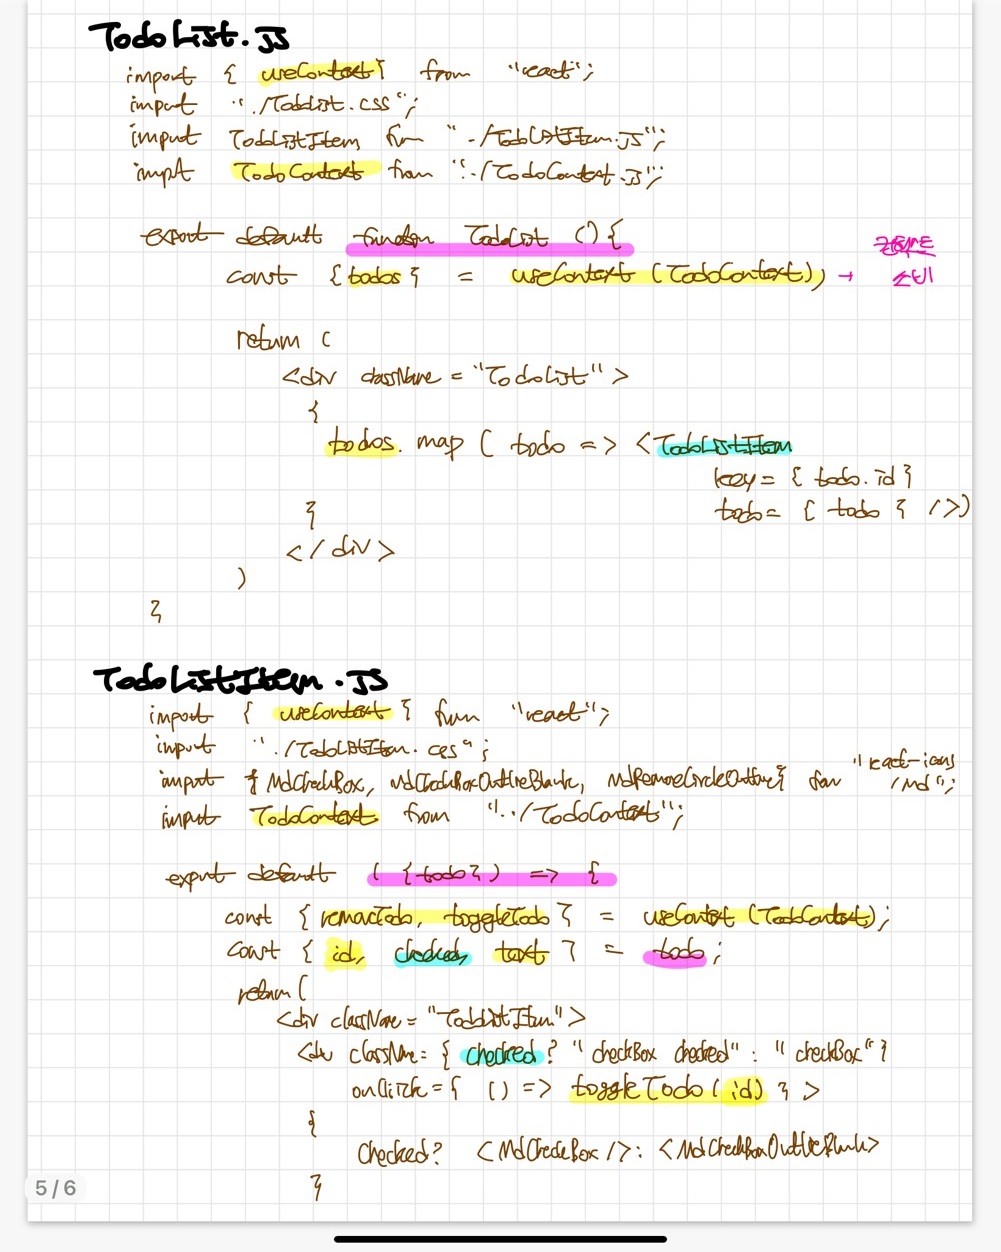 TodoList.JS
import { useContext } from "react";
import "./TodoList.css";
import TodoListItem from "./TodoListItem.JS";
import TodoContext from "../TodoContext.JS";
export default function TodoList () {
const { todos } = useContext (TodoContext) →
return (
<div className = "TodoList">
{
todos. map ( todo => <TodoListItem
key = { todo.id }
todo = { todo } />)
}
</div>
)
}
TodoListItem.JS
import { useContext } from "react";
import "./TodoListItem.css";
import { MdCheckBox, MdCheckBoxOutlineBlank, MdRemoveCircleOutline } from "react-icons/Md";
import TodoContext from "../TodoContext";
export default ( { todo } ) => {
const { removeTodo, toggleTodo } = useContext (TodoContext);
const { id, checked, text } = todo ;
return (
<div className = "TodoListItem">
<div className = { checked ? "checkBox checked" : "checkBox" }
onClick = { () => toggleTodo (id) } >
{
checked? <MdCheckBox /> : <MdCheckBoxOutlineBlank>
}
5/6